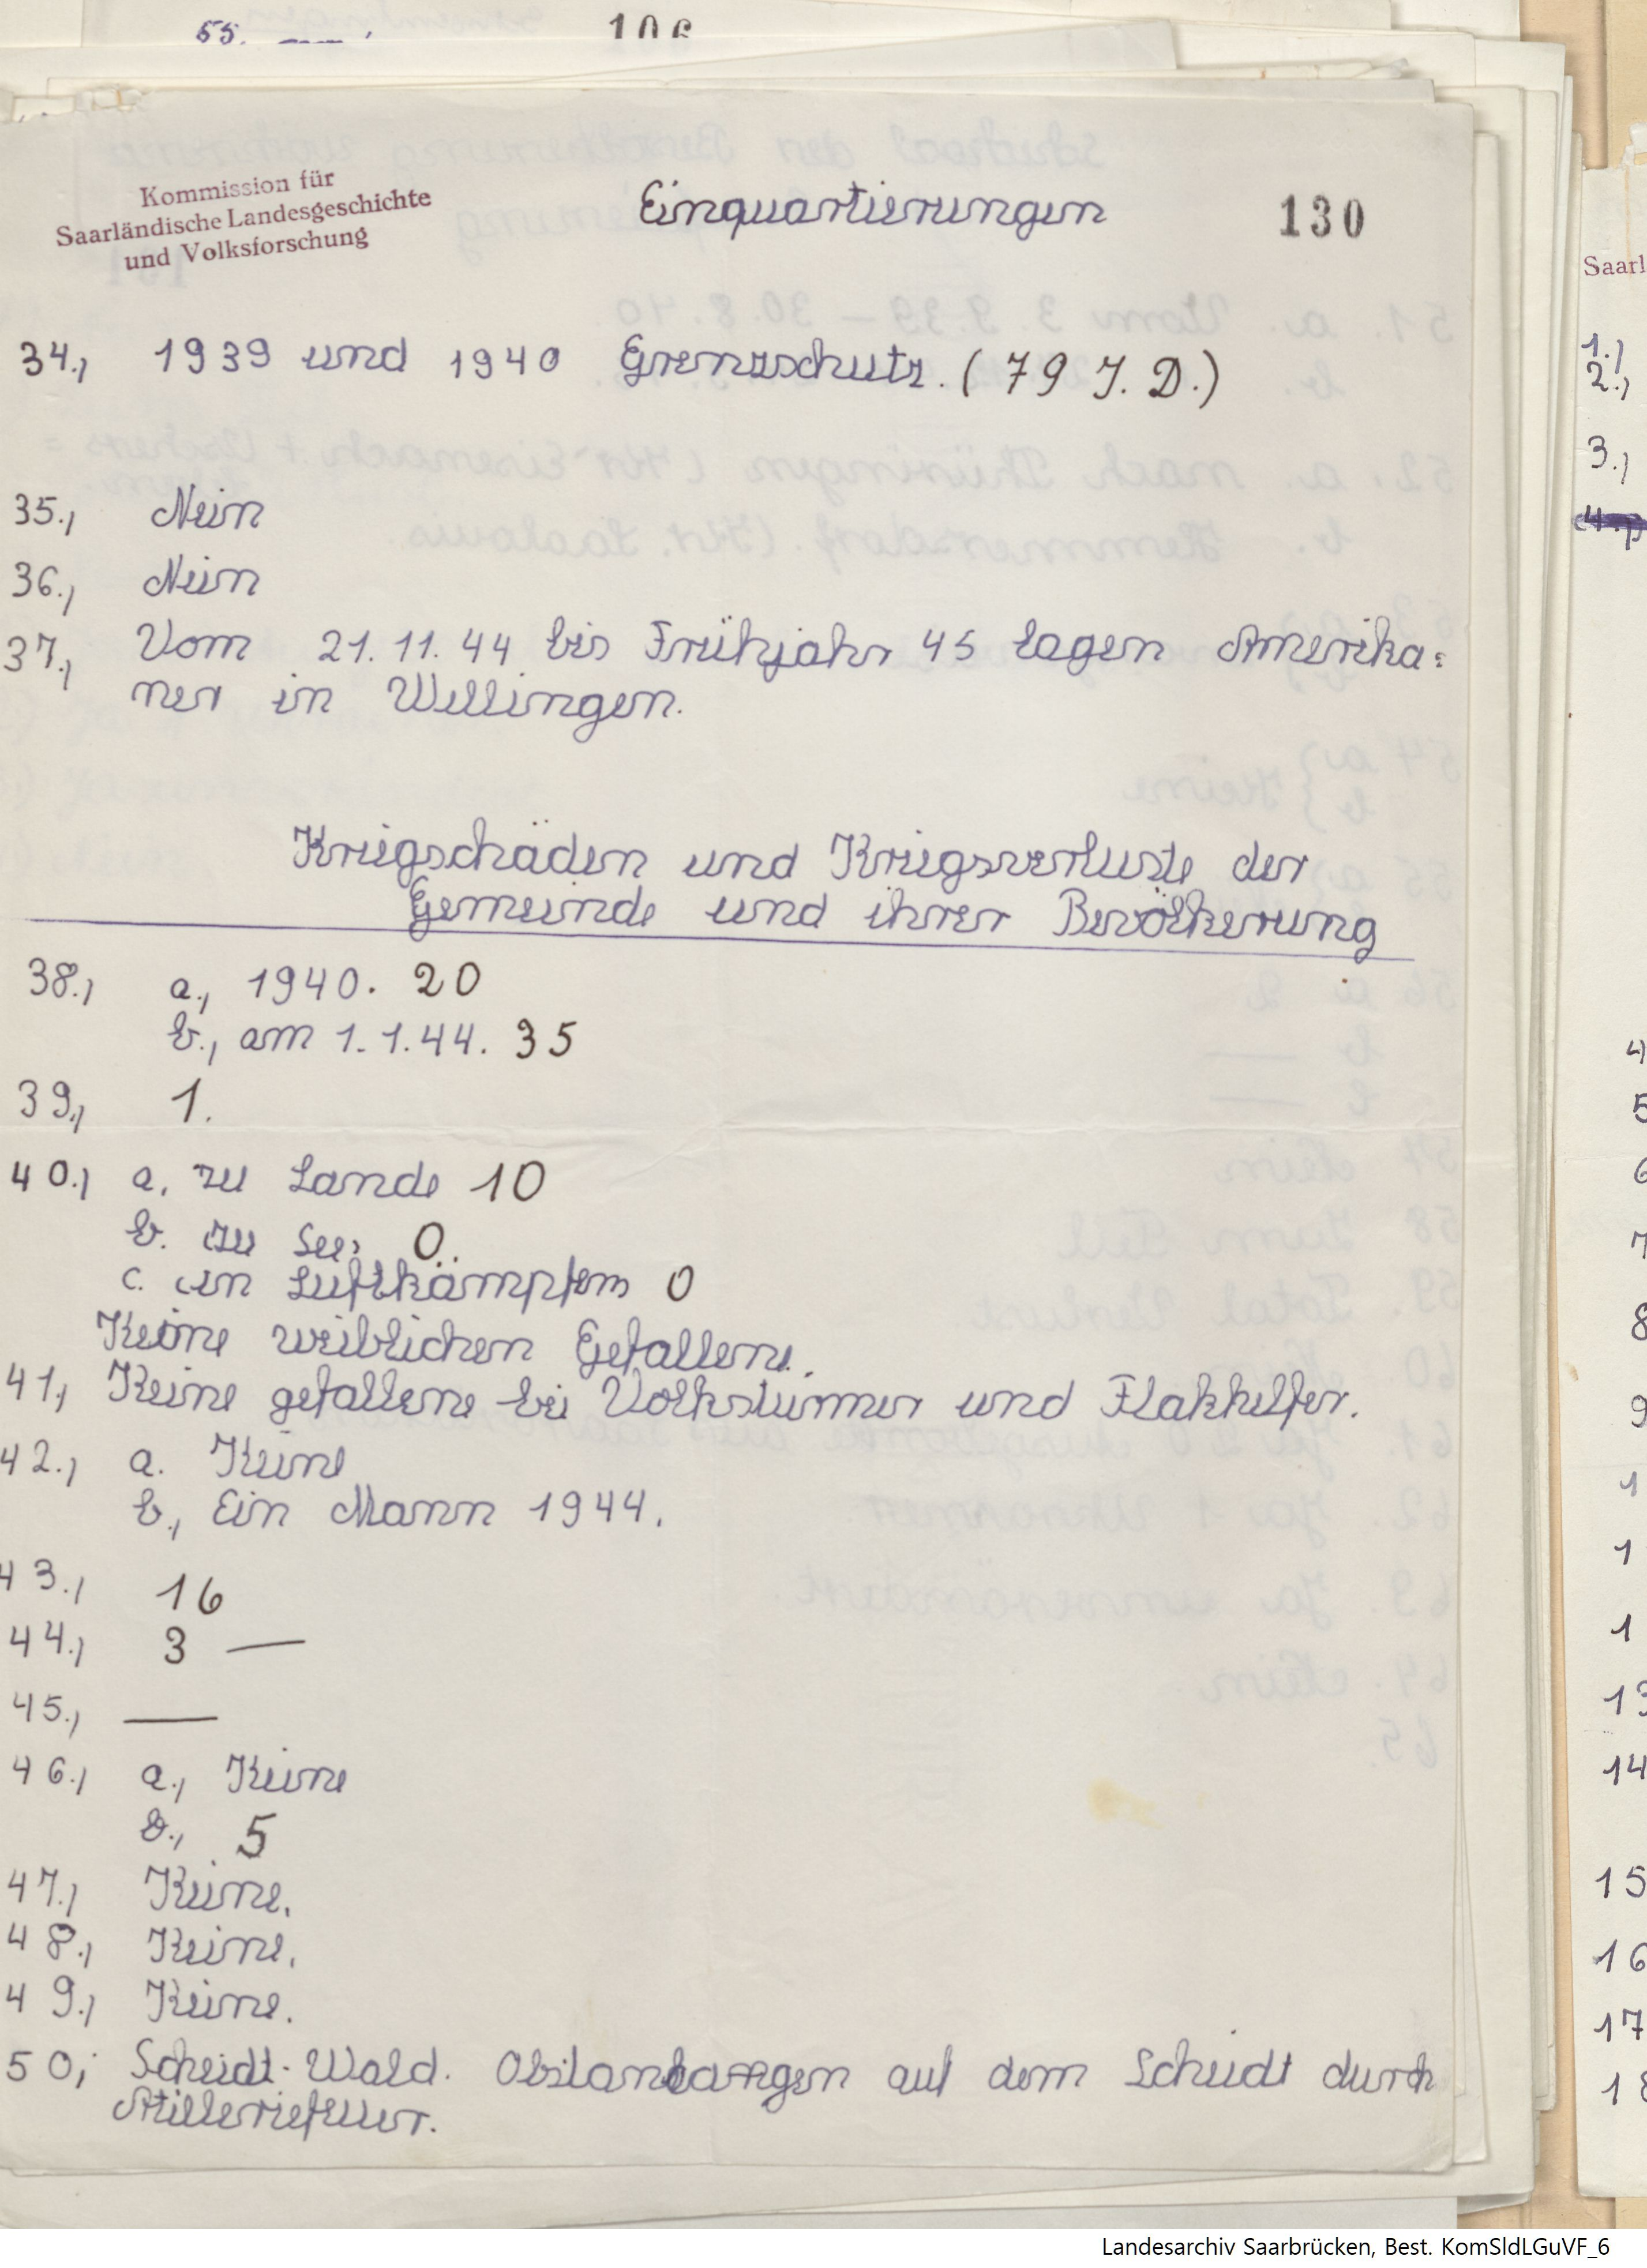 55.
106
Kommission für
Saarländische Landesgeschichte
und Volksforschung
Einquartierungen
130
34., 1939 und 1940 Grenzschutz. (79 J. D.)
35., Nein
36., Nein
37., Vom 21.11.44 bis Frühjahr 45 lagen Amerika=
ner in Wellingen.
Kriegschäden und Kriegsverluste der
Gemeinde und ihrer Bevölkerung
38., a., 1940. 20
b., am 1.1.44. 35
39., 1.
40., a. zu Lande 10
b. zu See, 0.
c. in Luftkämpfem 0
Keine weiblichen Gefallene.
41., Keine gefallene bei Volksturmer und Flakhelfer.
42., a. Keine
b., Ein Mann 1944.
43., 16
44., 3 —
45., —
46., a., Keine
b., 5
47., Keine.
48., Keine.
49., Keine.
50, Scheidt-Wald. Obstanlangen auf dem Scheidt durch
Atilleriefeuer.
Saarl
1.,
2.,
3.,
4.,
4
5
6
7
8
9
1
1
1
13
14
15
16
17
18
Landesarchiv Saarbrücken, Best. KomSldLGuVF_6